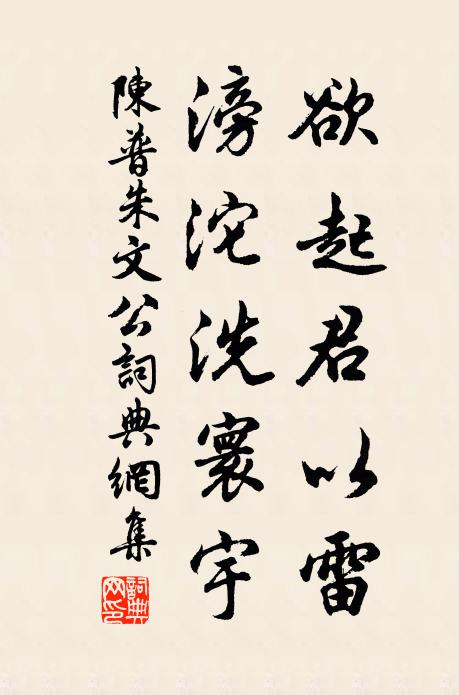 欲起君以雷
滂沱洗寰宇
陳普朱文公詞典網集
詞典網印